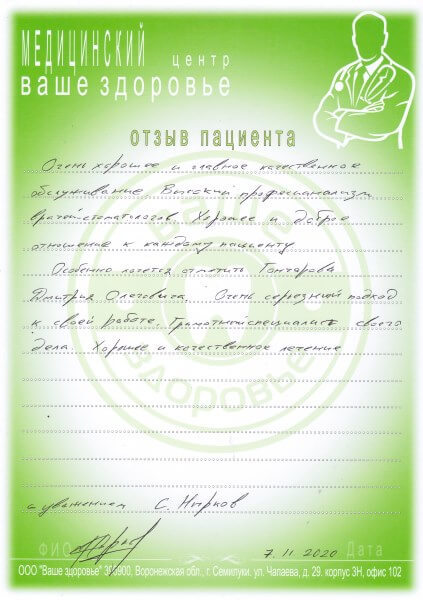 МЕДИЦИНСКИЙ центр
ваше здоровье
отзыв пациента
Очень хорошее и главное качественное
обслуживание Высокий професионализм
врачей стоматологов. Хорошее и доброе
отношение к каждому пациенту
Особенно хочется отметить Гончарова
Дмитрия Олеговича. Очень серьезный подход
к своей работе. Грамотный специалист своего
дела. Хорошее и качественное лечение
ЗДОРОВЬЕ
с уважением С. Нырков
ФИО 7.11.2020 Дата
ООО "Ваше здоровье" 396900, Воронежская обл., г. Семилуки. ул. Чапаева, д. 29. корпус 3Н, офис 102